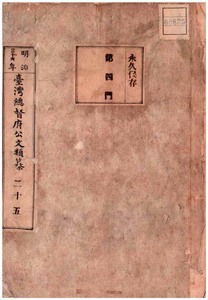 永久保存
第四門
明治
臺灣總督府公文類纂
二十五